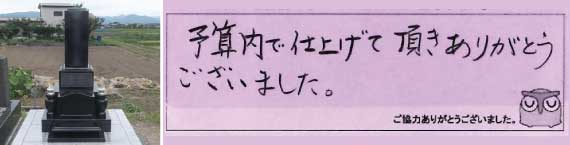 予算内で仕上げて頂きありがとう
ございました。
ご協力ありがとうございました。